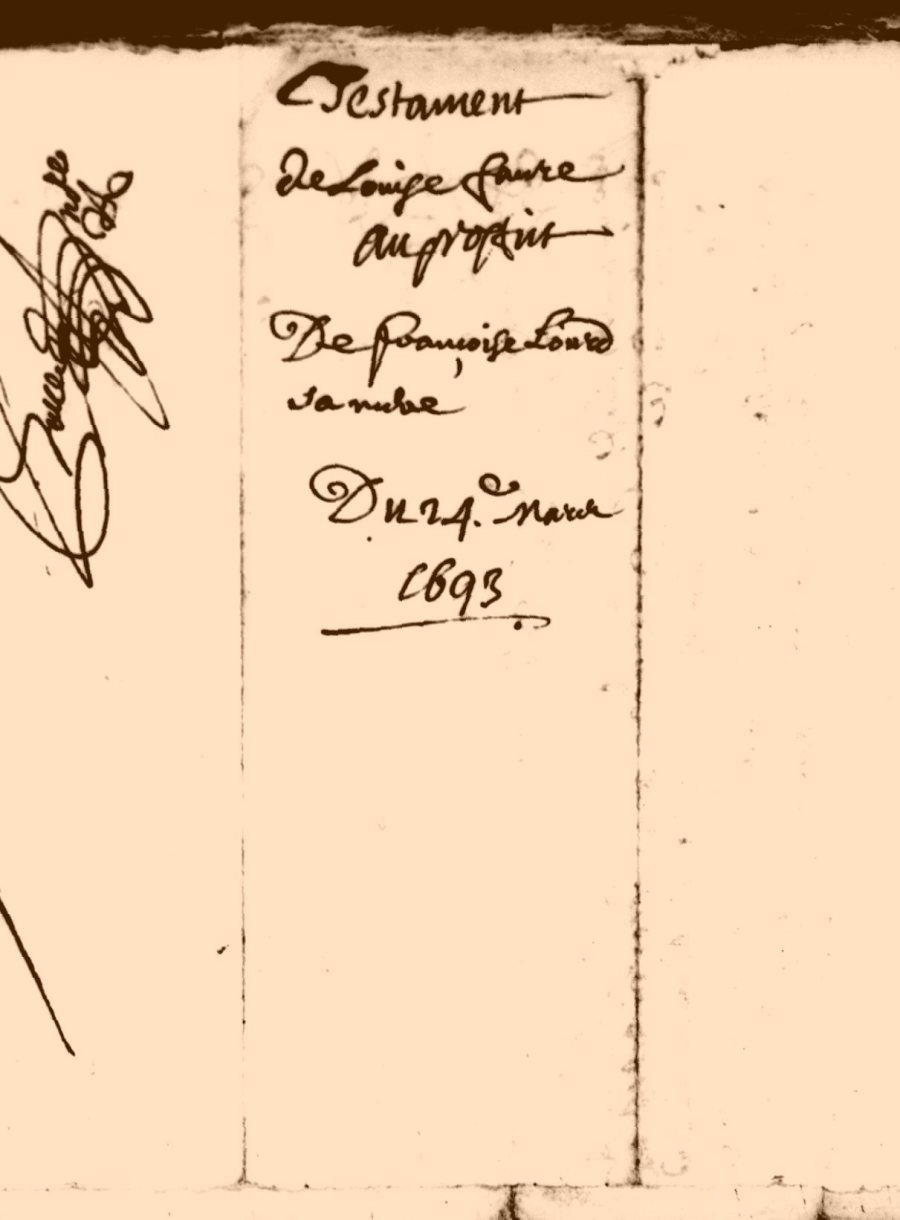 Testament
de Louise faure
au proffit
De francoise Liourd
sa mere
Du 24.e Mars
1693